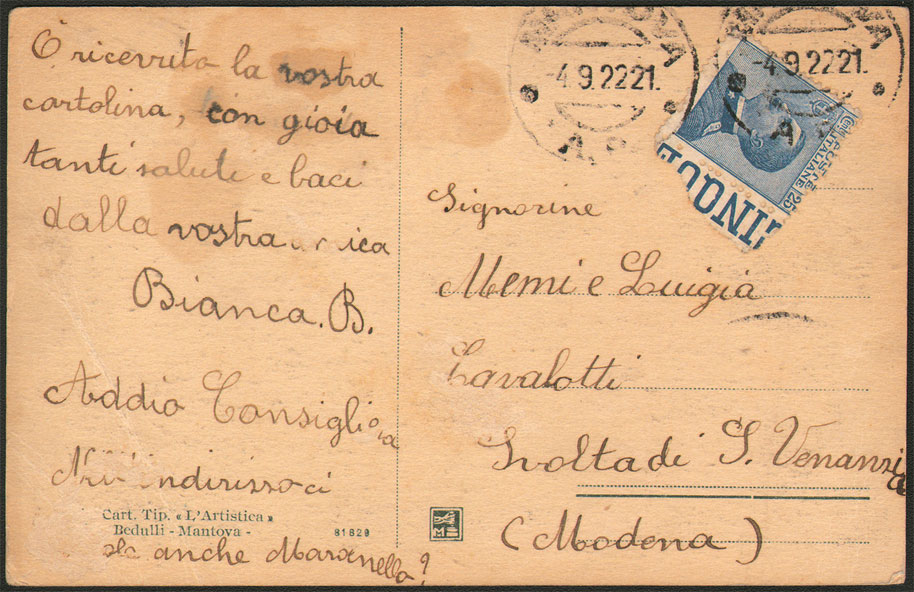 O ricevuto la vostra
cartolina, con gioia
tanti saluti e baci
dalla vostra amica
Bianca. B.
Addio Consiglia
indirissoci
anche Maranello?
Cart. Tip. « L'Artistica »
Bedulli - Mantova -
81829
-4.9.22 21.
-4.9.22 21.
POSTE ITALIANE
CINQUE
25
Signorine
Memi e Luigia
Zavalotti
Svolta di S. Venanzio
(Modena)